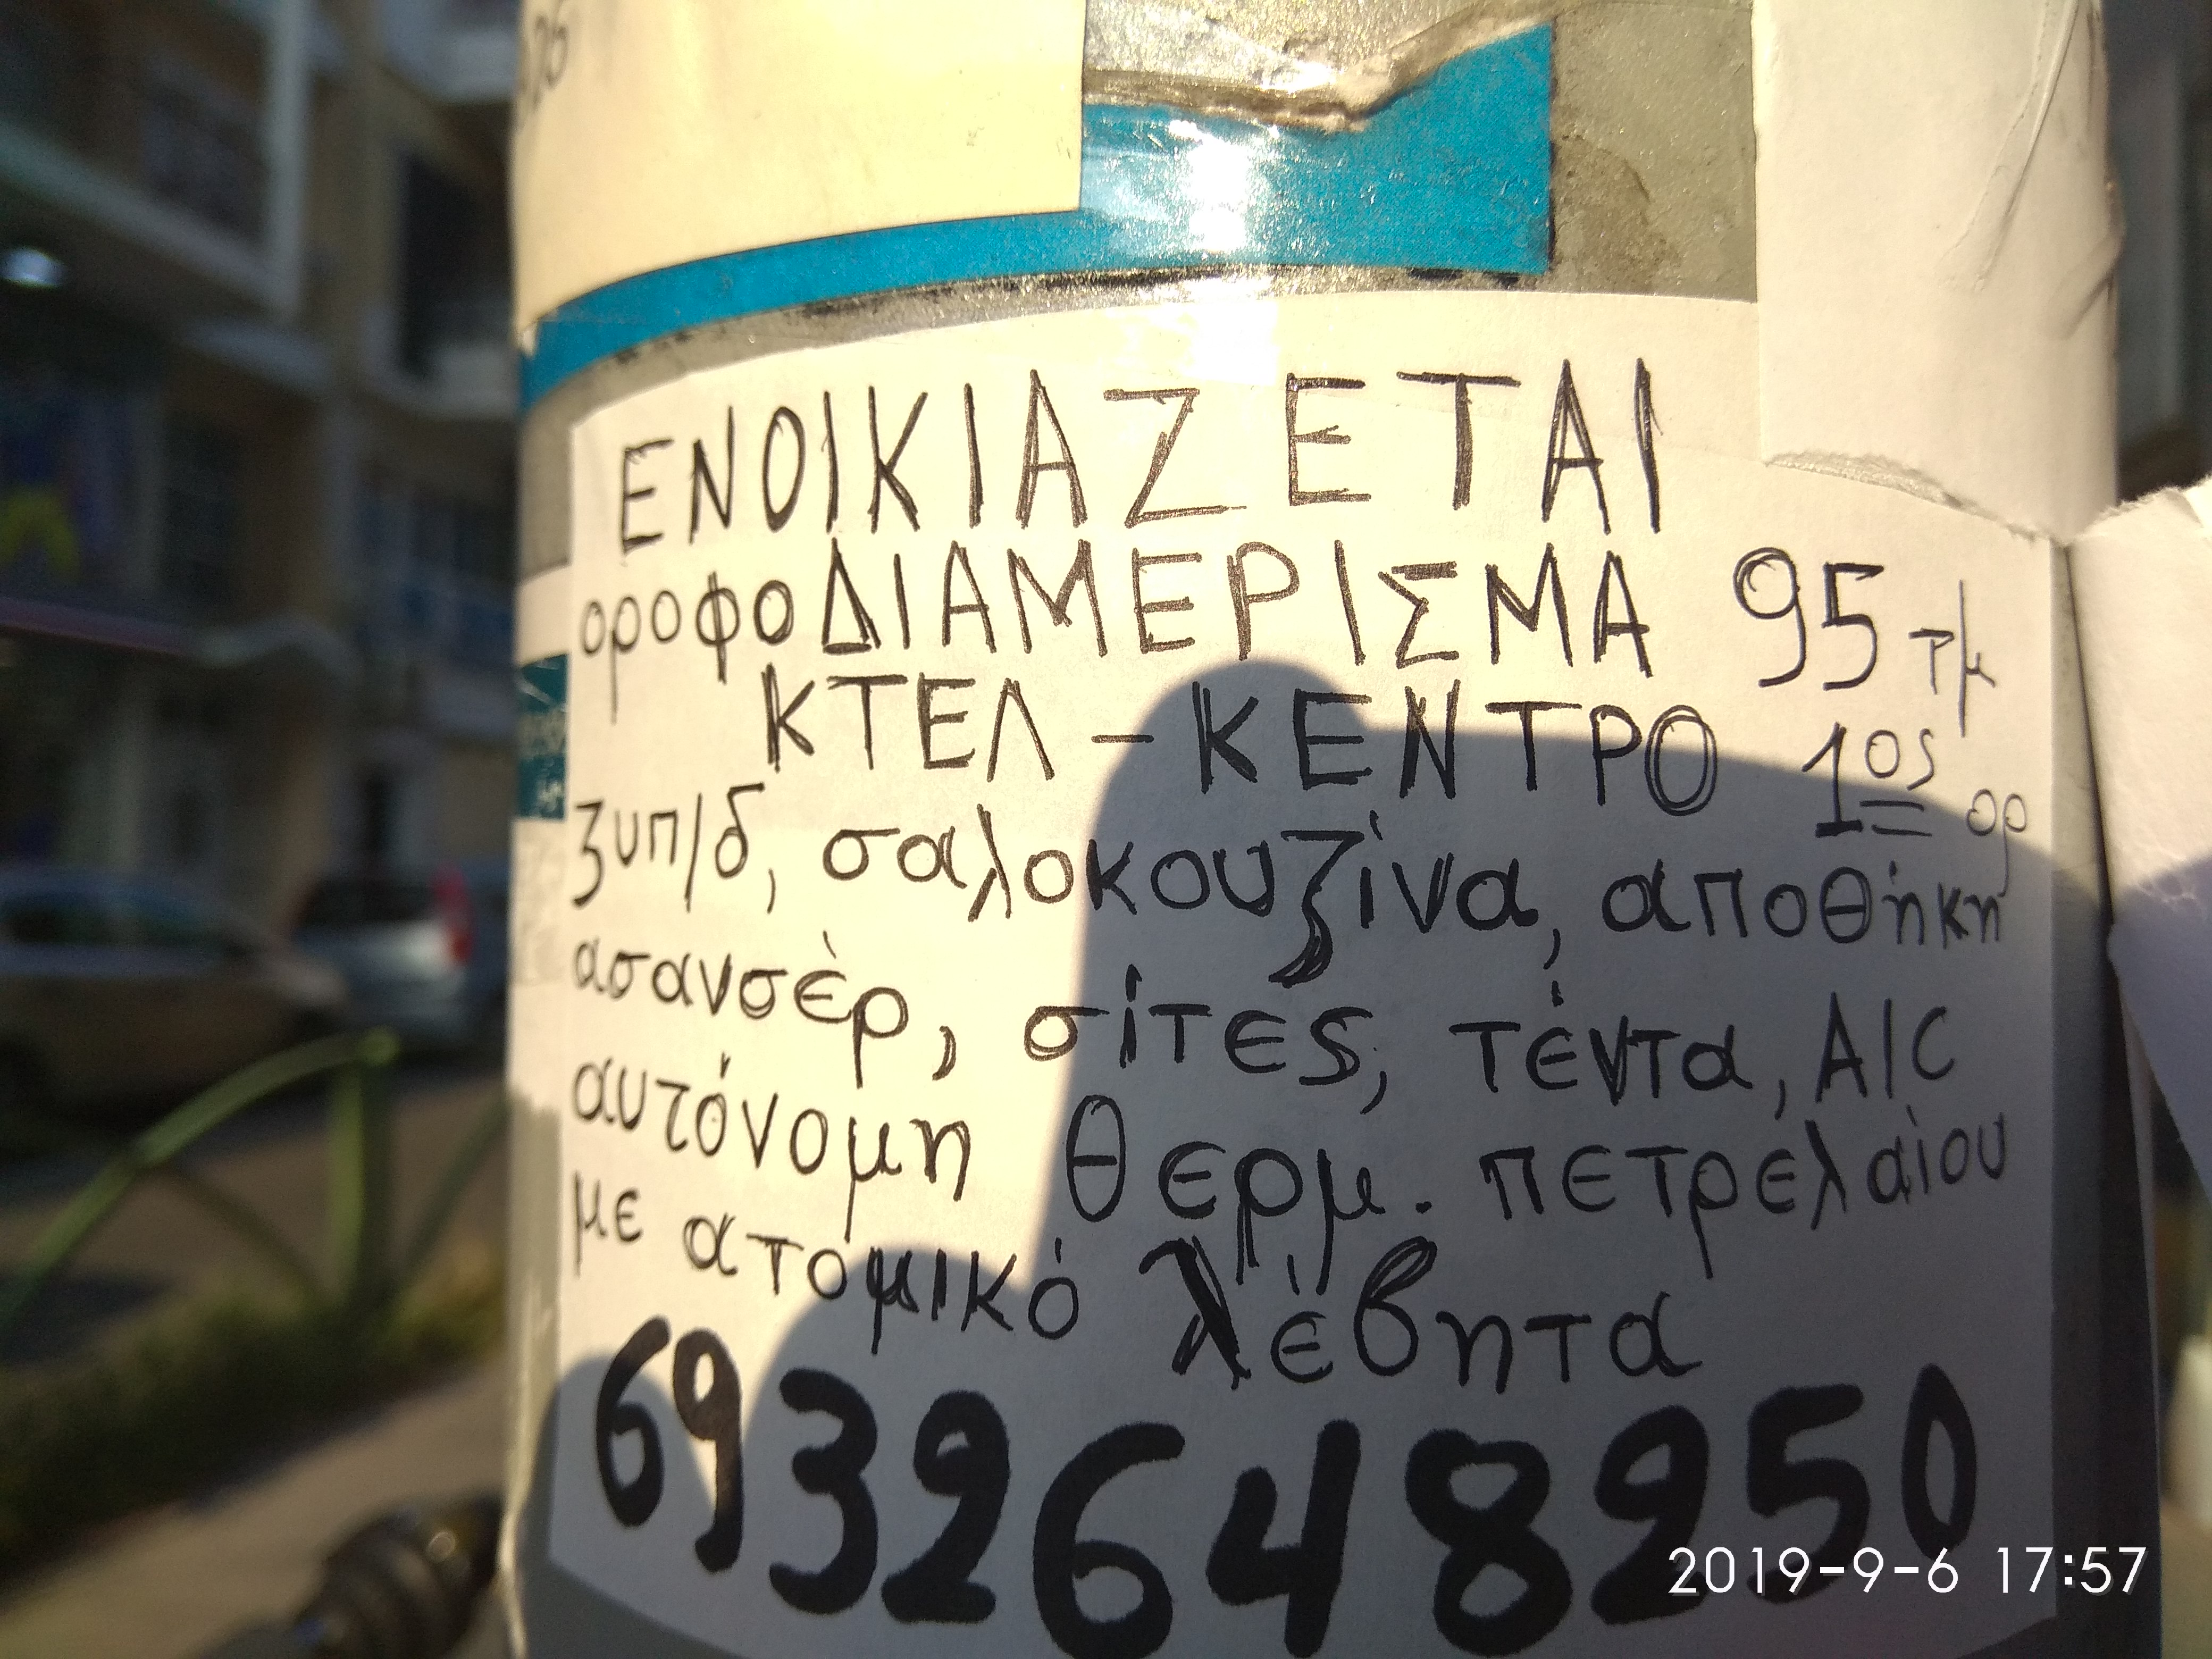 ΕΝΟΙΚΙΑΖΕΤΑΙ
οροφοΔΙΑΜΕΡΙΣΜΑ 95 τμ
ΚΤΕΛ - ΚΕΝΤΡΟ 1ος ορ
3υπ/δ, σαλοκουζίνα, αποθήκη
ασανσέρ, σίτες, τέντα, A/C
αυτόνομη θερμ. πετρελαίου
με ατομικό λέβητα
6932648250
2019-9-6 17:57